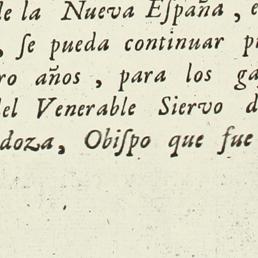 de la Nueva Eſpaña, e
, ſe pueda continuar p
ro años, para los ga
del Venerable Siervo d
doza, Obiſpo que fue